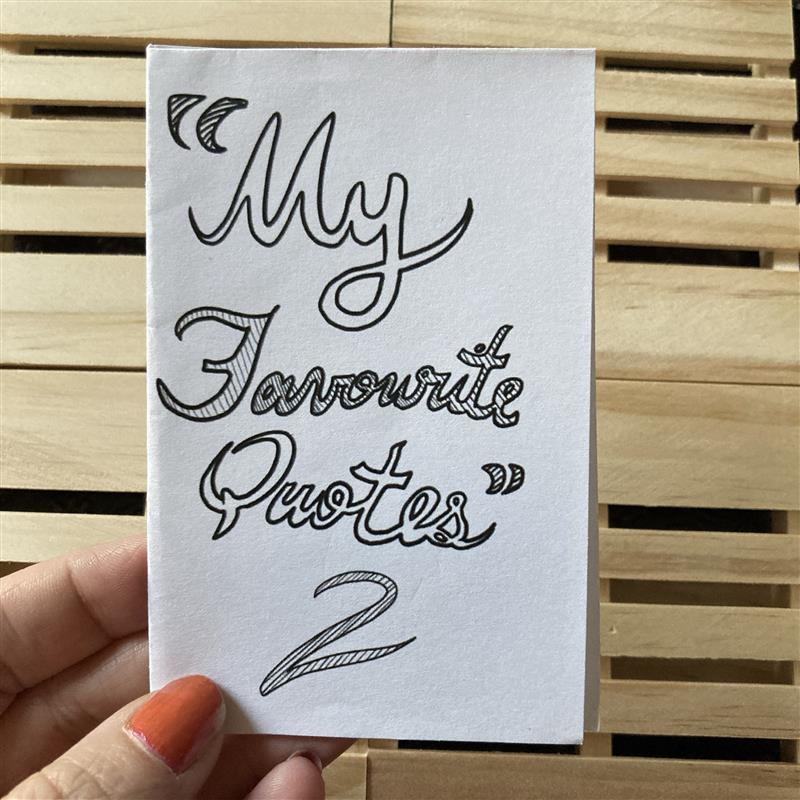 “My
Favourite
Quotes”
2